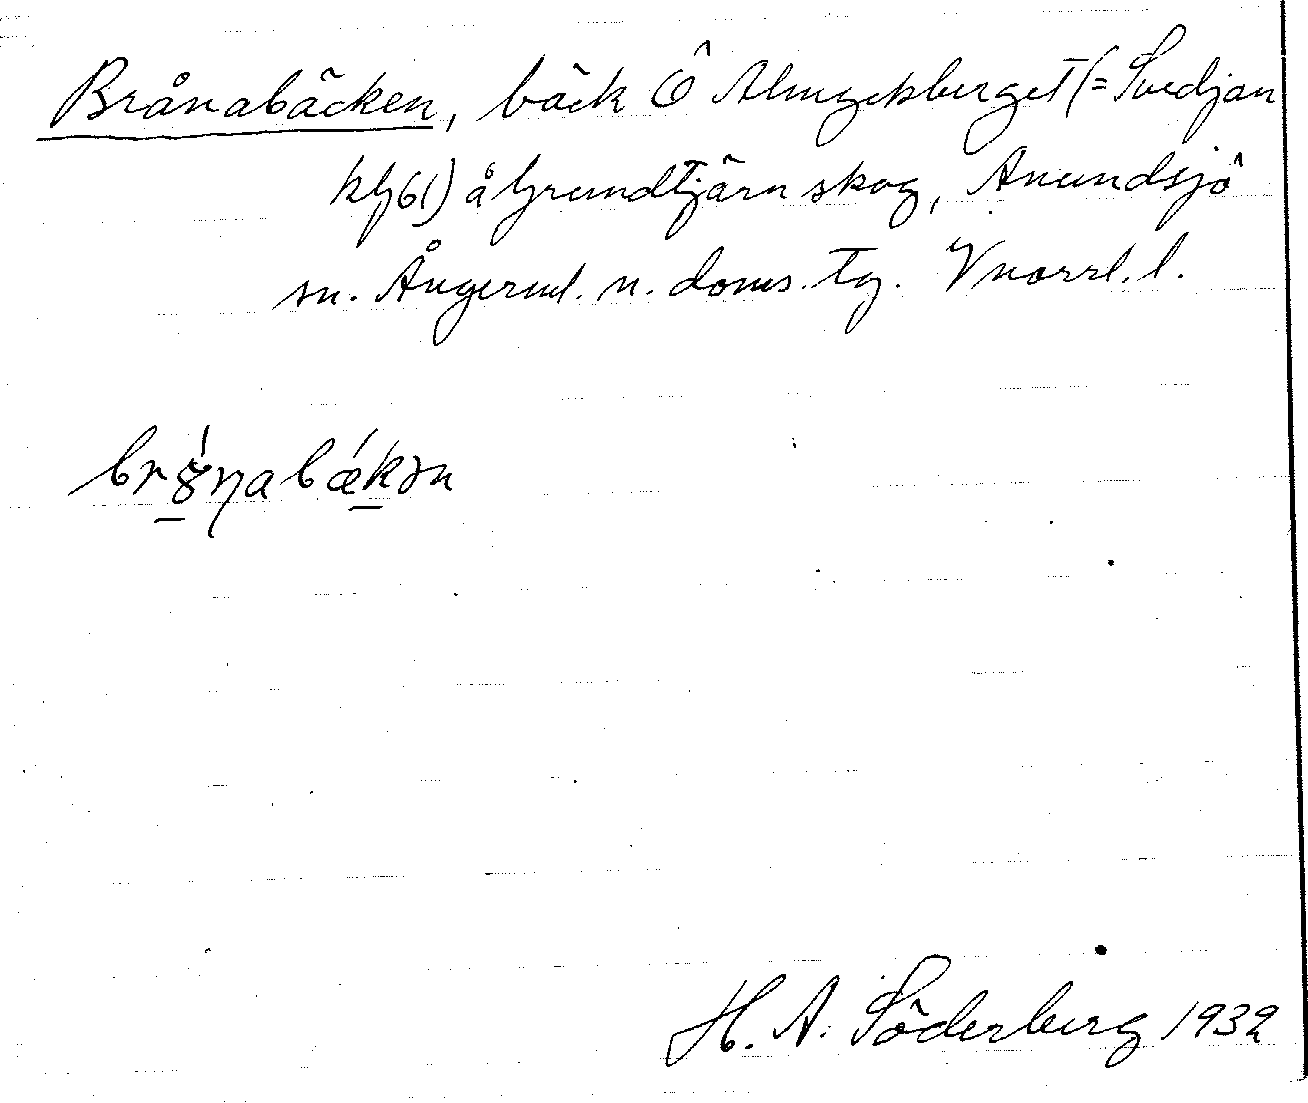 Brånabäcken, bäck Ö Almyckberget (= Svedjan
kf 61) å Grundtjärn skog, Anundsjö
sn. Ångerml. n. doms. tg. Vnorrl. l.
br8́ŋabǽkən
H. A. Söderberg 1932